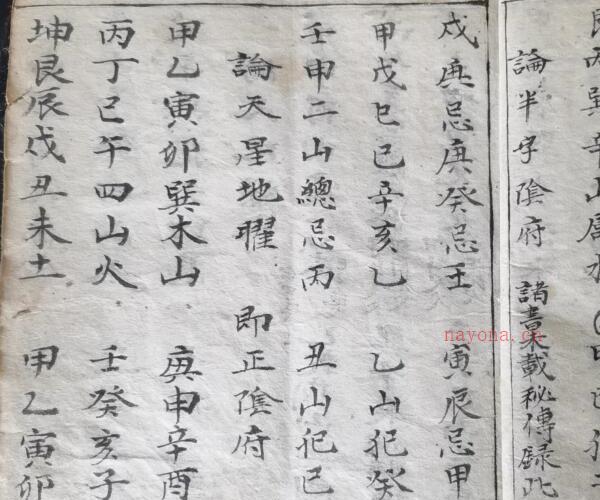 即丙巽辛山屬水
論半字陰府 諸書未載秘傳錄此
戍庚忌庚癸忌壬 寅辰忌甲
甲戊巳己辛亥乙 乙山犯癸
壬申二山總忌丙 丑山犯己
論天星地曜 即正陰府
甲乙寅卯巽木山 庚申辛酉
丙丁巳午四山火 壬癸亥子
坤艮辰戊丑未土 甲乙寅卯
nayona.cn